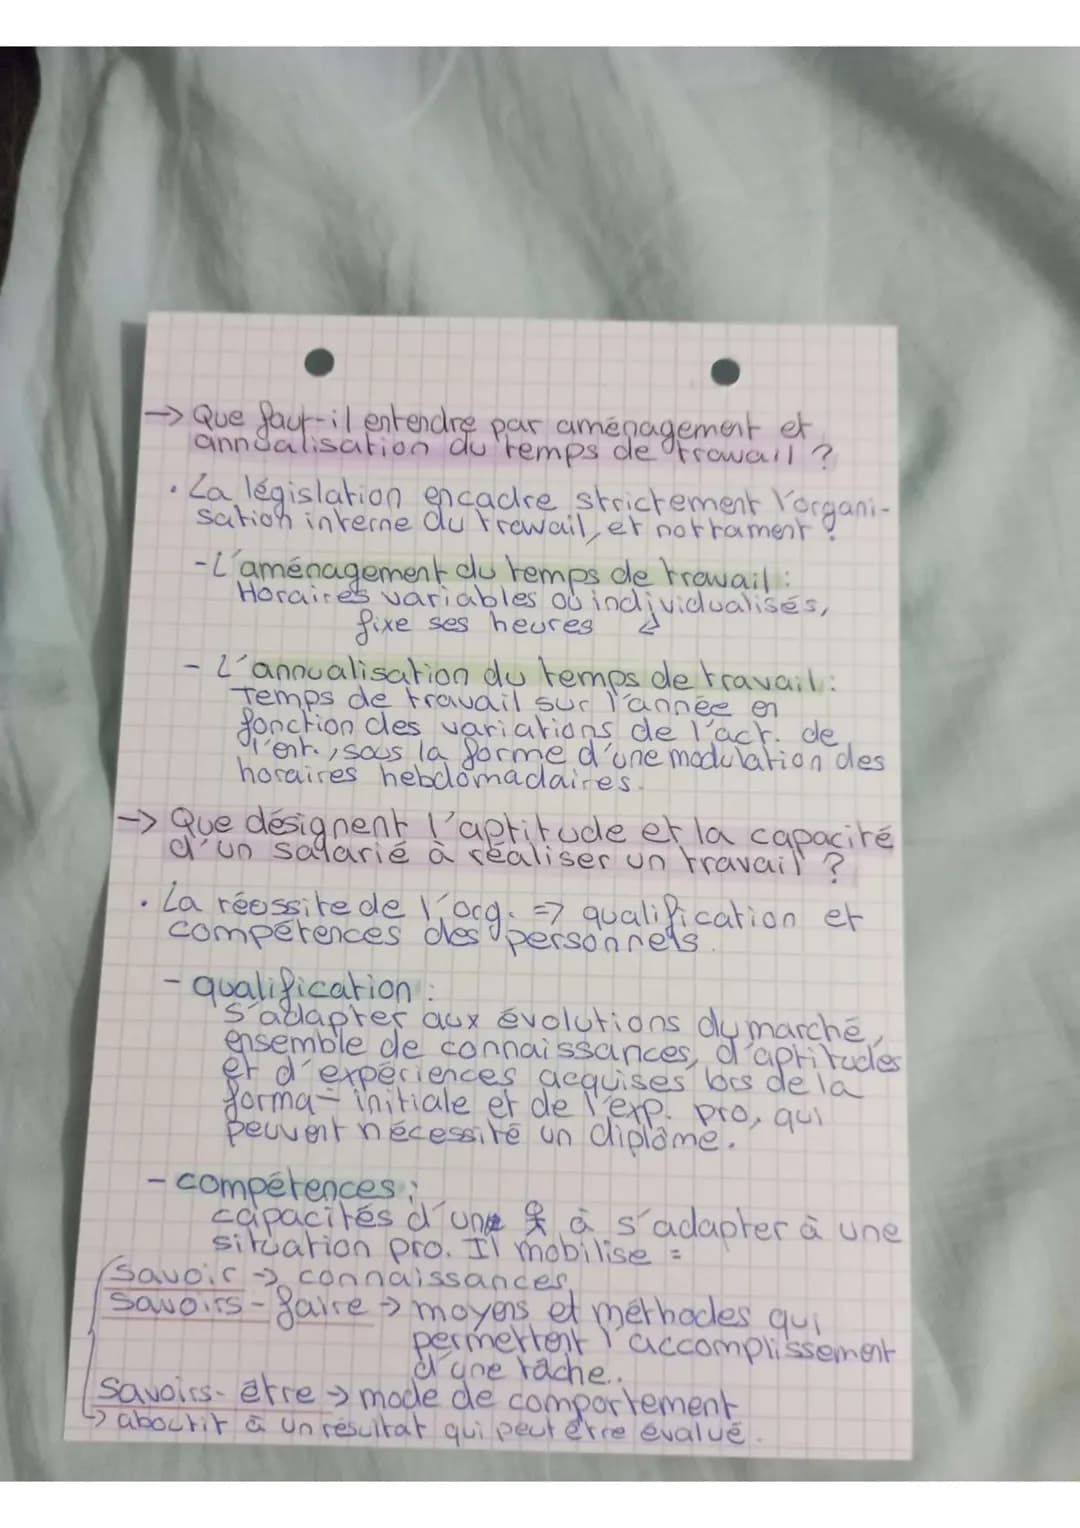 → Que faut-il entendre par aménagement et
annualisation du temps de travail ?
• La législation encadre strictement l'organi-
sation interne du travail, et nottament :
- L'aménagement du temps de travail :
Horaires variables ou individualisés,
fixe ses heures ↲
- L'annualisation du temps de travail :
Temps de travail sur l'année en
fonction des variations de l'act. de
l'ent., sous la forme d'une modulation des
horaires hebdomadaires.
→ Que désignent l'aptitude et la capacité
d'un salarié à réaliser un travail ?
• La réussite de l'org. => qualification et
compétences des personnels.
- qualification :
s'adapter aux évolutions du marché,
ensemble de connaissances, d'aptitudes
et d'expériences acquises lors de la
forma- initiale et de l'exp. pro, qui
peuvent nécessité un diplôme.
- compétences :
capacités d'une à s'adapter à une
situation pro. Il mobilise =
savoir → connaissances
savoirs-faire → moyens et méthodes qui
permettent l'accomplissement
d'une tâche..
savoirs-être → mode de comportement
↳ aboutir à un résultat qui peut être évalué.